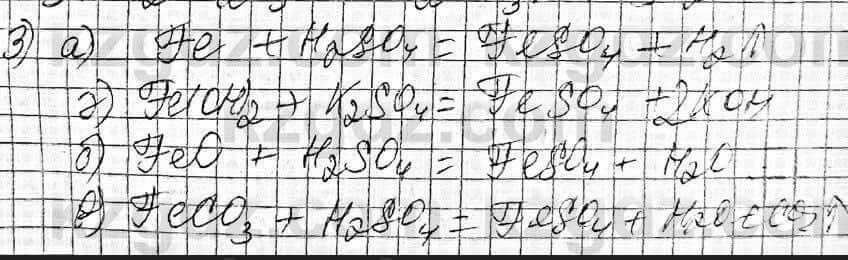 3) а) Fe + H₂SO₄ = FeSO₄ + H₂↑
г) Fe(OH)₂ + K₂SO₄ = FeSO₄ + 2KOH
б) FeO + H₂SO₄ = FeSO₄ + H₂O
в) FeCO₃ + H₂SO₄ = FeSO₄ + H₂O + CO₂↑